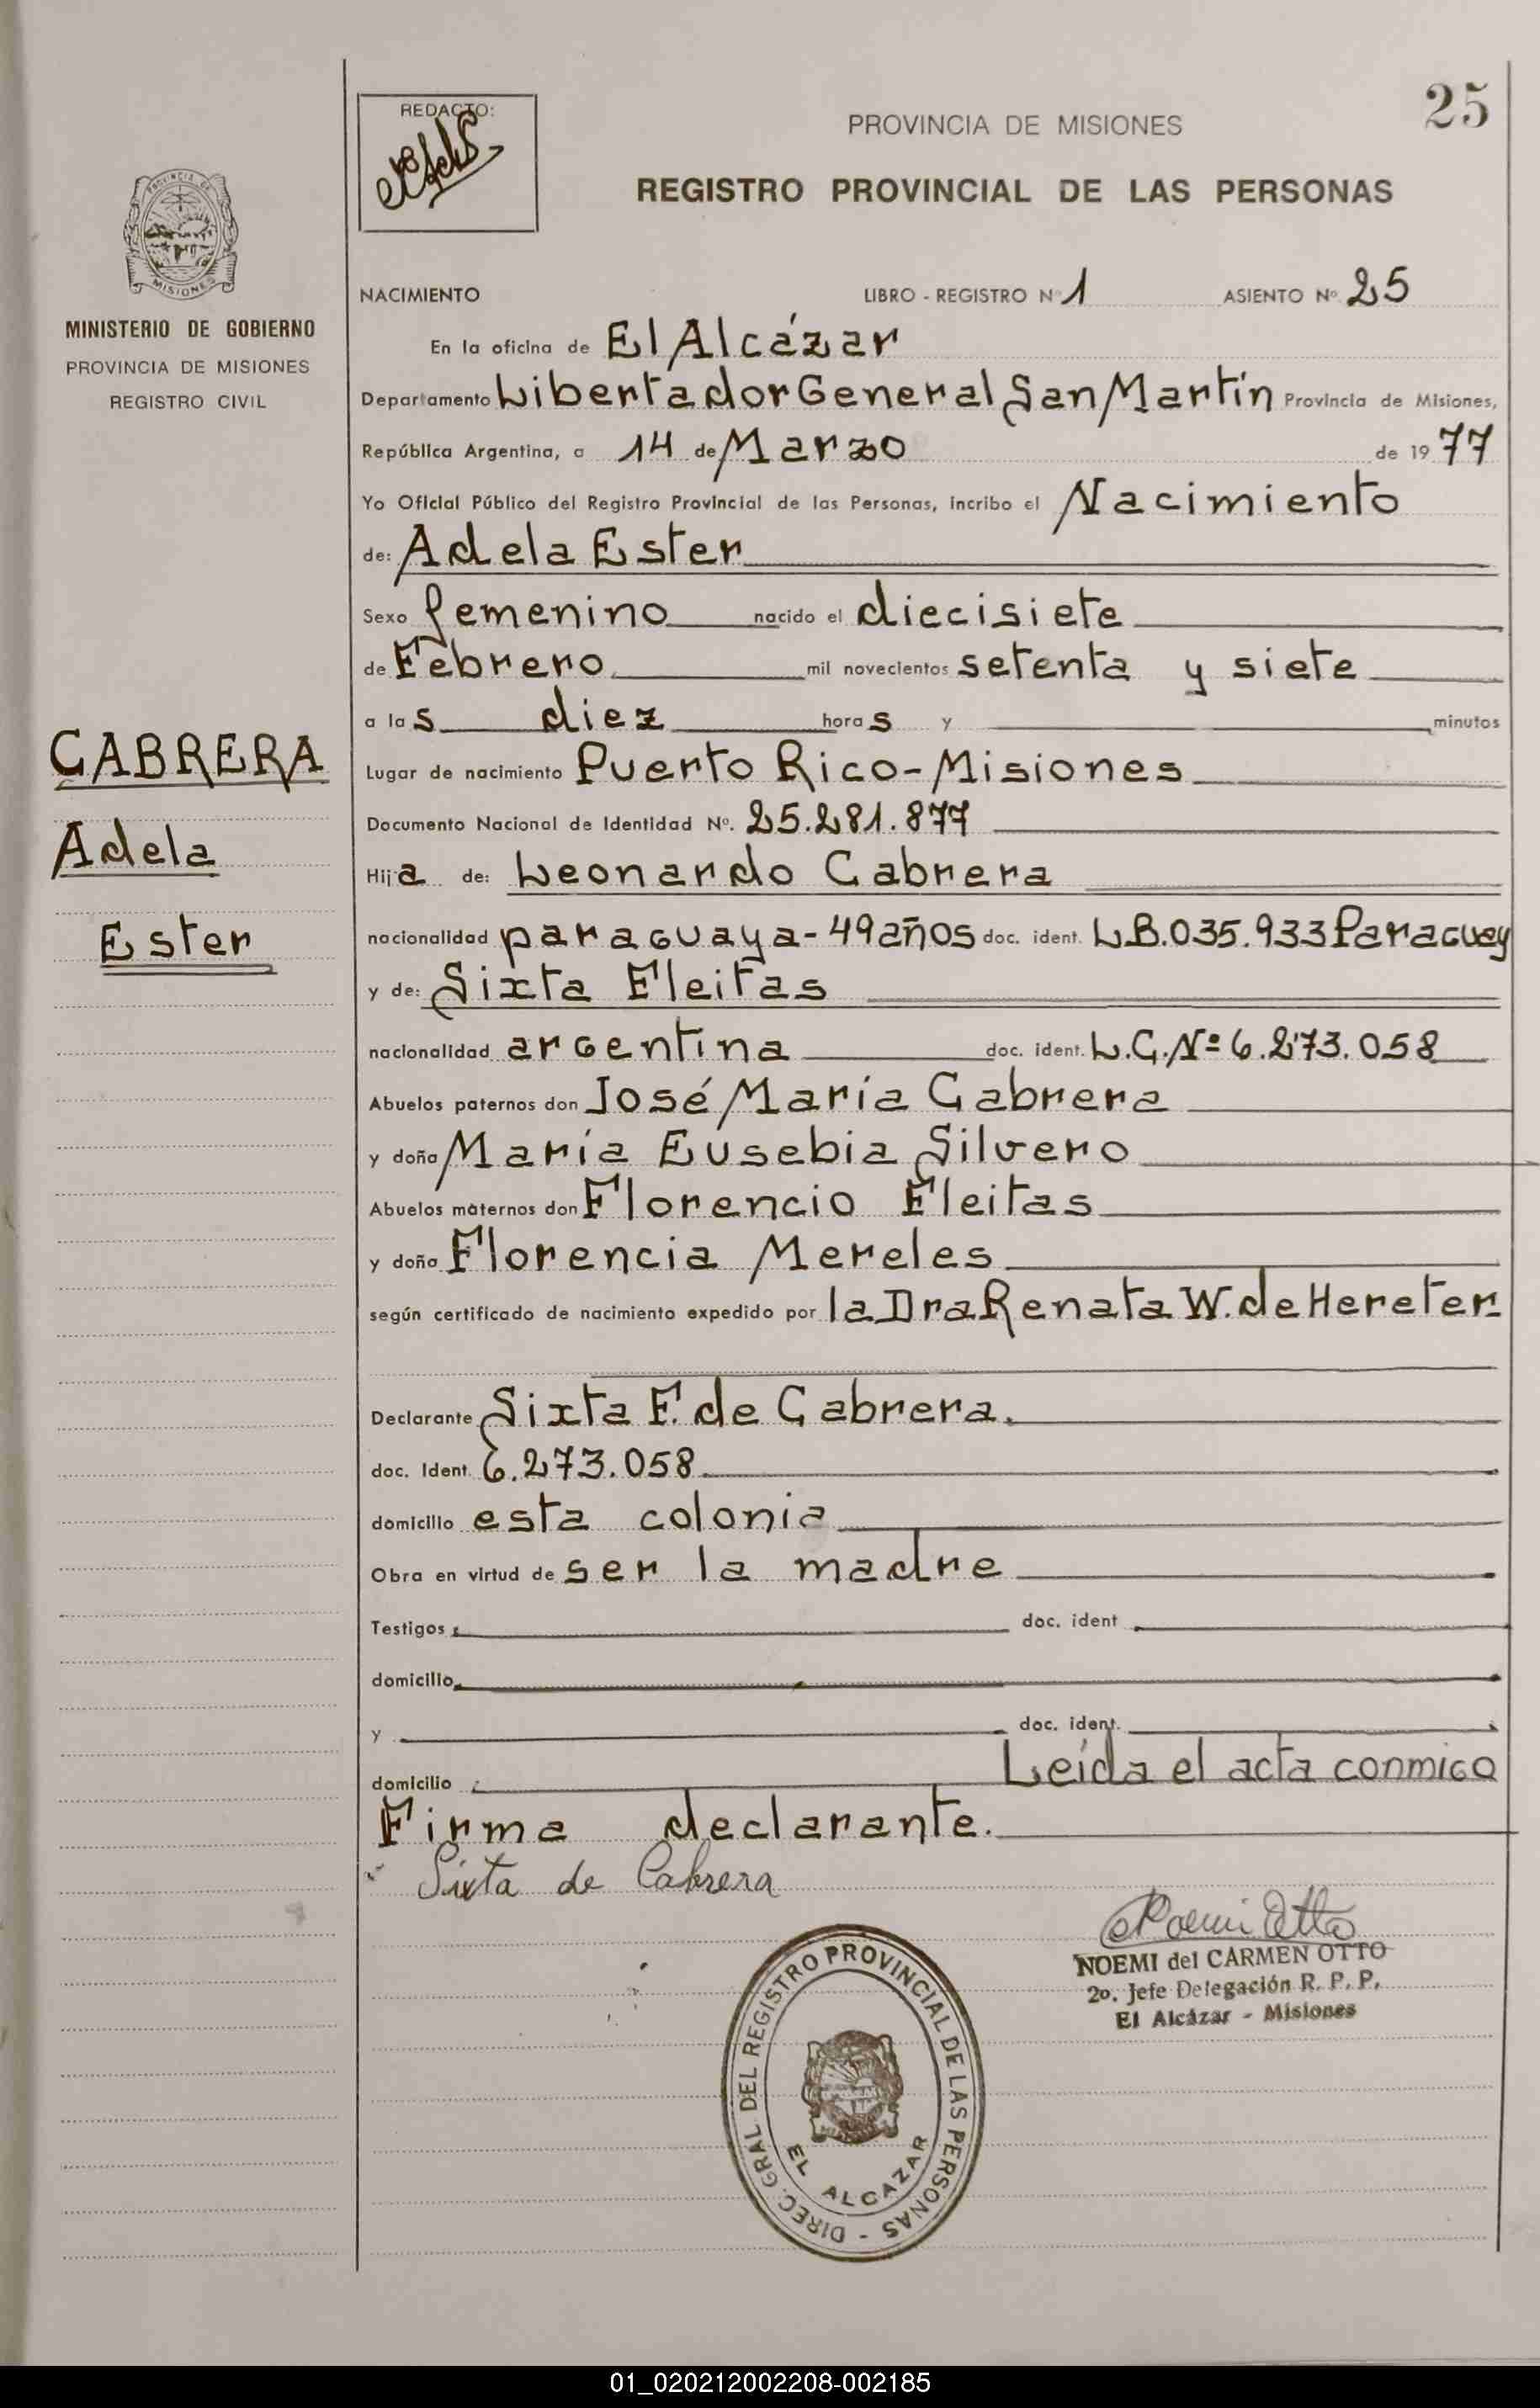 25
REDACTO:
PROVINCIA DE MISIONES
REGISTRO PROVINCIAL DE LAS PERSONAS
PROVINCIA DE
MISIONES
MINISTERIO DE GOBIERNO
PROVINCIA DE MISIONES
REGISTRO CIVIL
CABRERA
Adela
Ester
NACIMIENTO LIBRO - REGISTRO Nº 1 ASIENTO Nº 25
En la oficina de El Alcázar
Departamento Libertador General San Martín Provincia de Misiones,
República Argentina, a 14 de Marzo de 1977
Yo Oficial Público del Registro Provincial de las Personas, incribo el Nacimiento
de: Adela Ester
Sexo femenino nacido el diecisiete
de Febrero mil novecientos setenta y siete
a las diez horas y minutos
Lugar de nacimiento Puerto Rico - Misiones
Documento Nacional de Identidad Nº. 25.281.877
Hija de: Leonardo Cabrera
nacionalidad paraguaya - 49 años doc. ident. L.B. 035.933 Paraguay
y de: Sixta Fleitas
nacionalidad argentina doc. ident. L.C. Nº 6.273.058
Abuelos paternos don José María Cabrera
y doña María Eusebia Silvero
Abuelos maternos don Florencio Fleitas
y doña Florencia Mereles
según certificado de nacimiento expedido por la Dra Renata W. de Hereter
Declarante Sixta F. de Cabrera.
doc. Ident. 6.273.058
domicilio esta colonia
Obra en virtud de ser la madre
Testigos doc. ident
domicilio
y doc. ident.
domicilio Leída el acta conmigo
Firma declarante.
Sixta de Cabrera
Noemi Otto
NOEMI del CARMEN OTTO
2o. Jefe Delegación R. P. P.
El Alcázar - Misiones
DIREC. GRAL. DEL REGISTRO PROVINCIAL DE LAS PERSONAS -
EL ALCAZAR
01_020212002208-002185